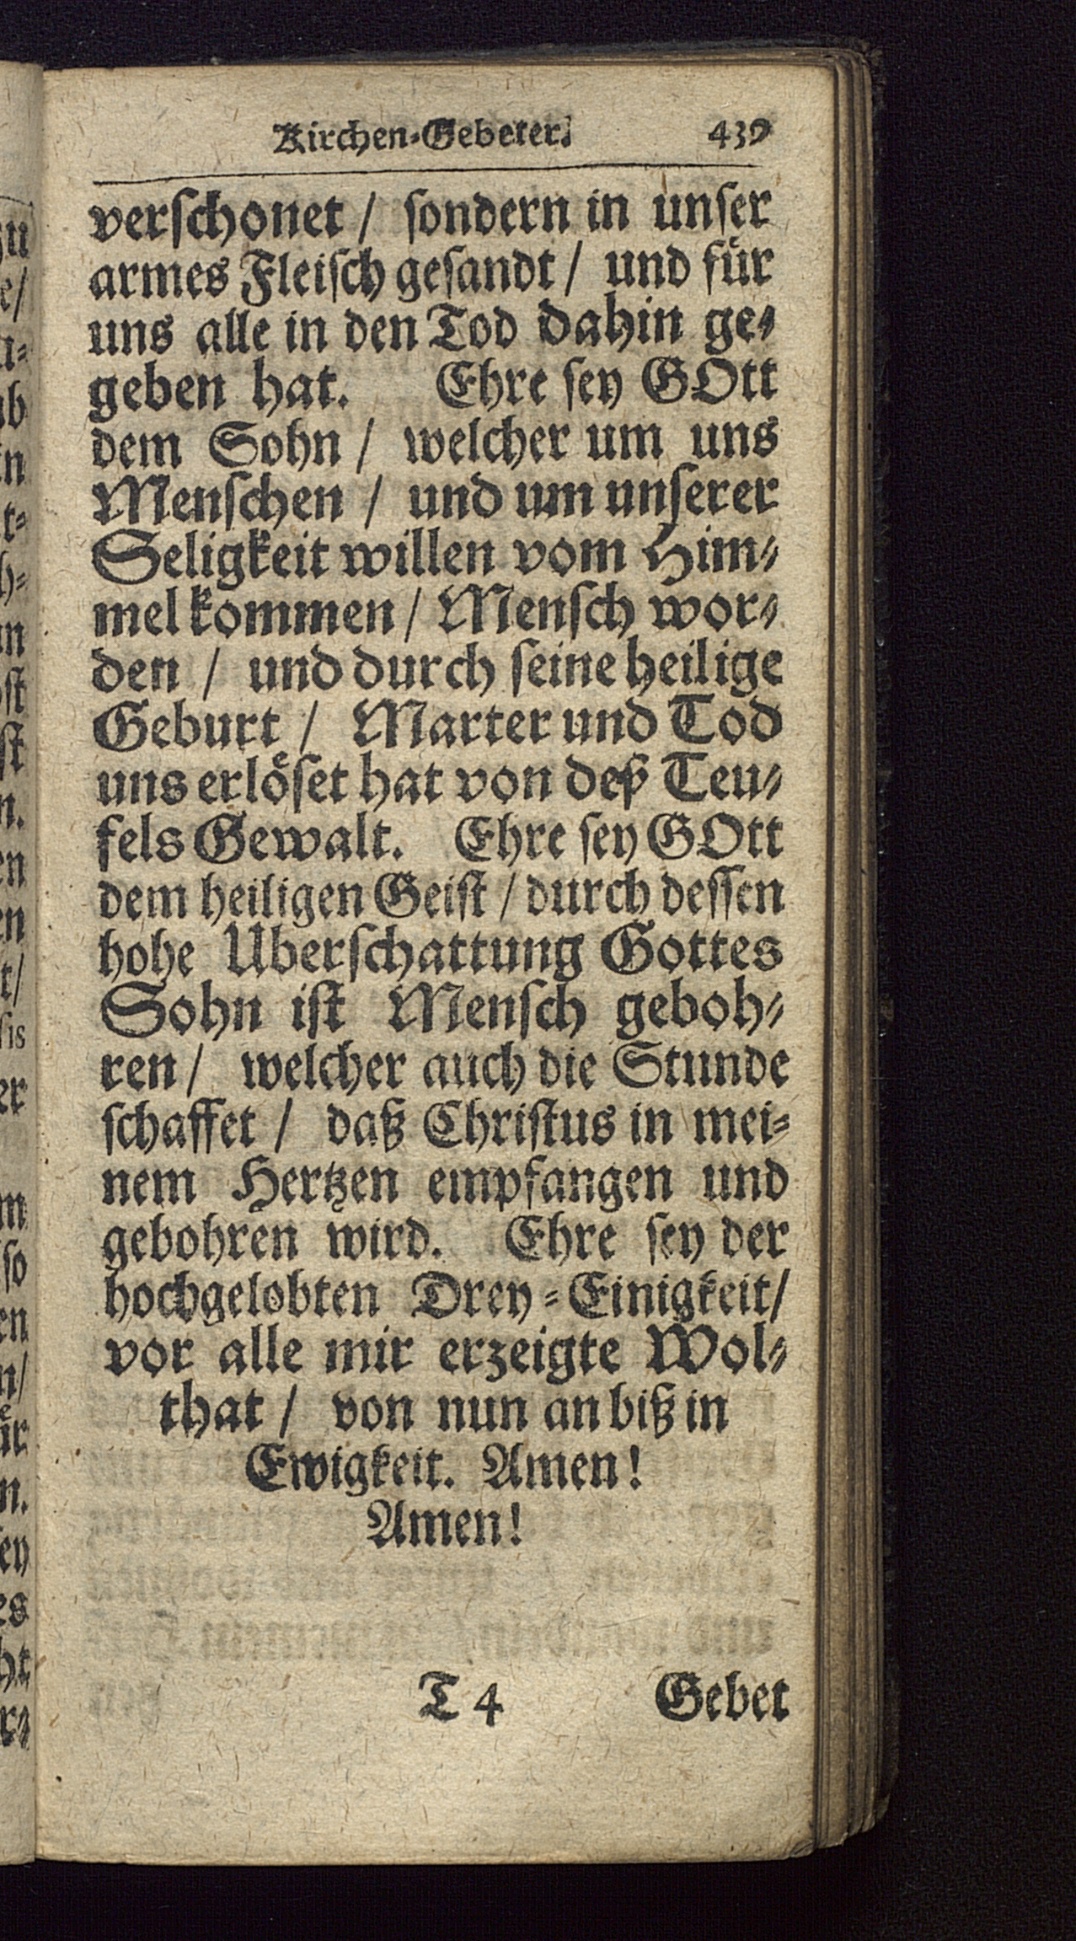 Kirchen-Gebeter. 439
verschonet / sondern in unser
armes Fleisch gesandt / und für
uns alle in den Tod dahin ge-
geben hat. Ehre sey GOtt
dem Sohn / welcher um uns
Menschen / und um unserer
Seligkeit willen vom Him-
mel kommen / Mensch wor-
den / und durch seine heilige
Geburt / Marter und Tod
uns erlöset hat von deß Teu-
fels Gewalt. Ehre sey GOtt
dem heiligen Geist / durch dessen
hohe Uberschattung Gottes
Sohn ist Mensch geboh-
ren / welcher auch die Stunde
schaffet / daß Christus in mei-
nem Hertzen empfangen und
gebohren wird. Ehre sey der
hochgelobten Drey-Einigkeit/
vor alle mir erzeigte Wol-
that / von nun an biß in
Ewigkeit. Amen!
Amen!
T 4 Gebet